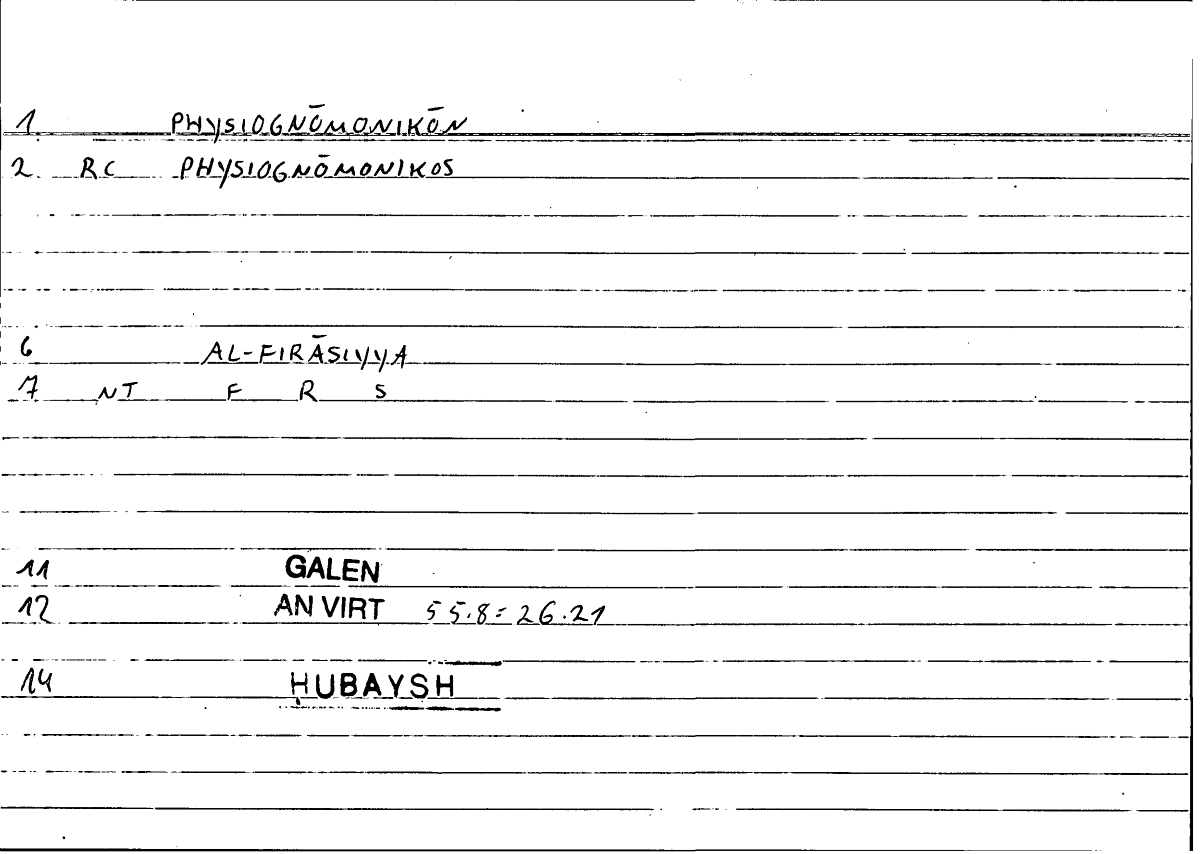 1. PHYSIOGNŌMONIKŌN
2. RC PHYSIOGNŌMONIKOS
6 AL-FIRĀSIYYA
7 NT F R S
11 GALEN
12 AN VIRT 55.8=26.21
14 ḤUBAYSH